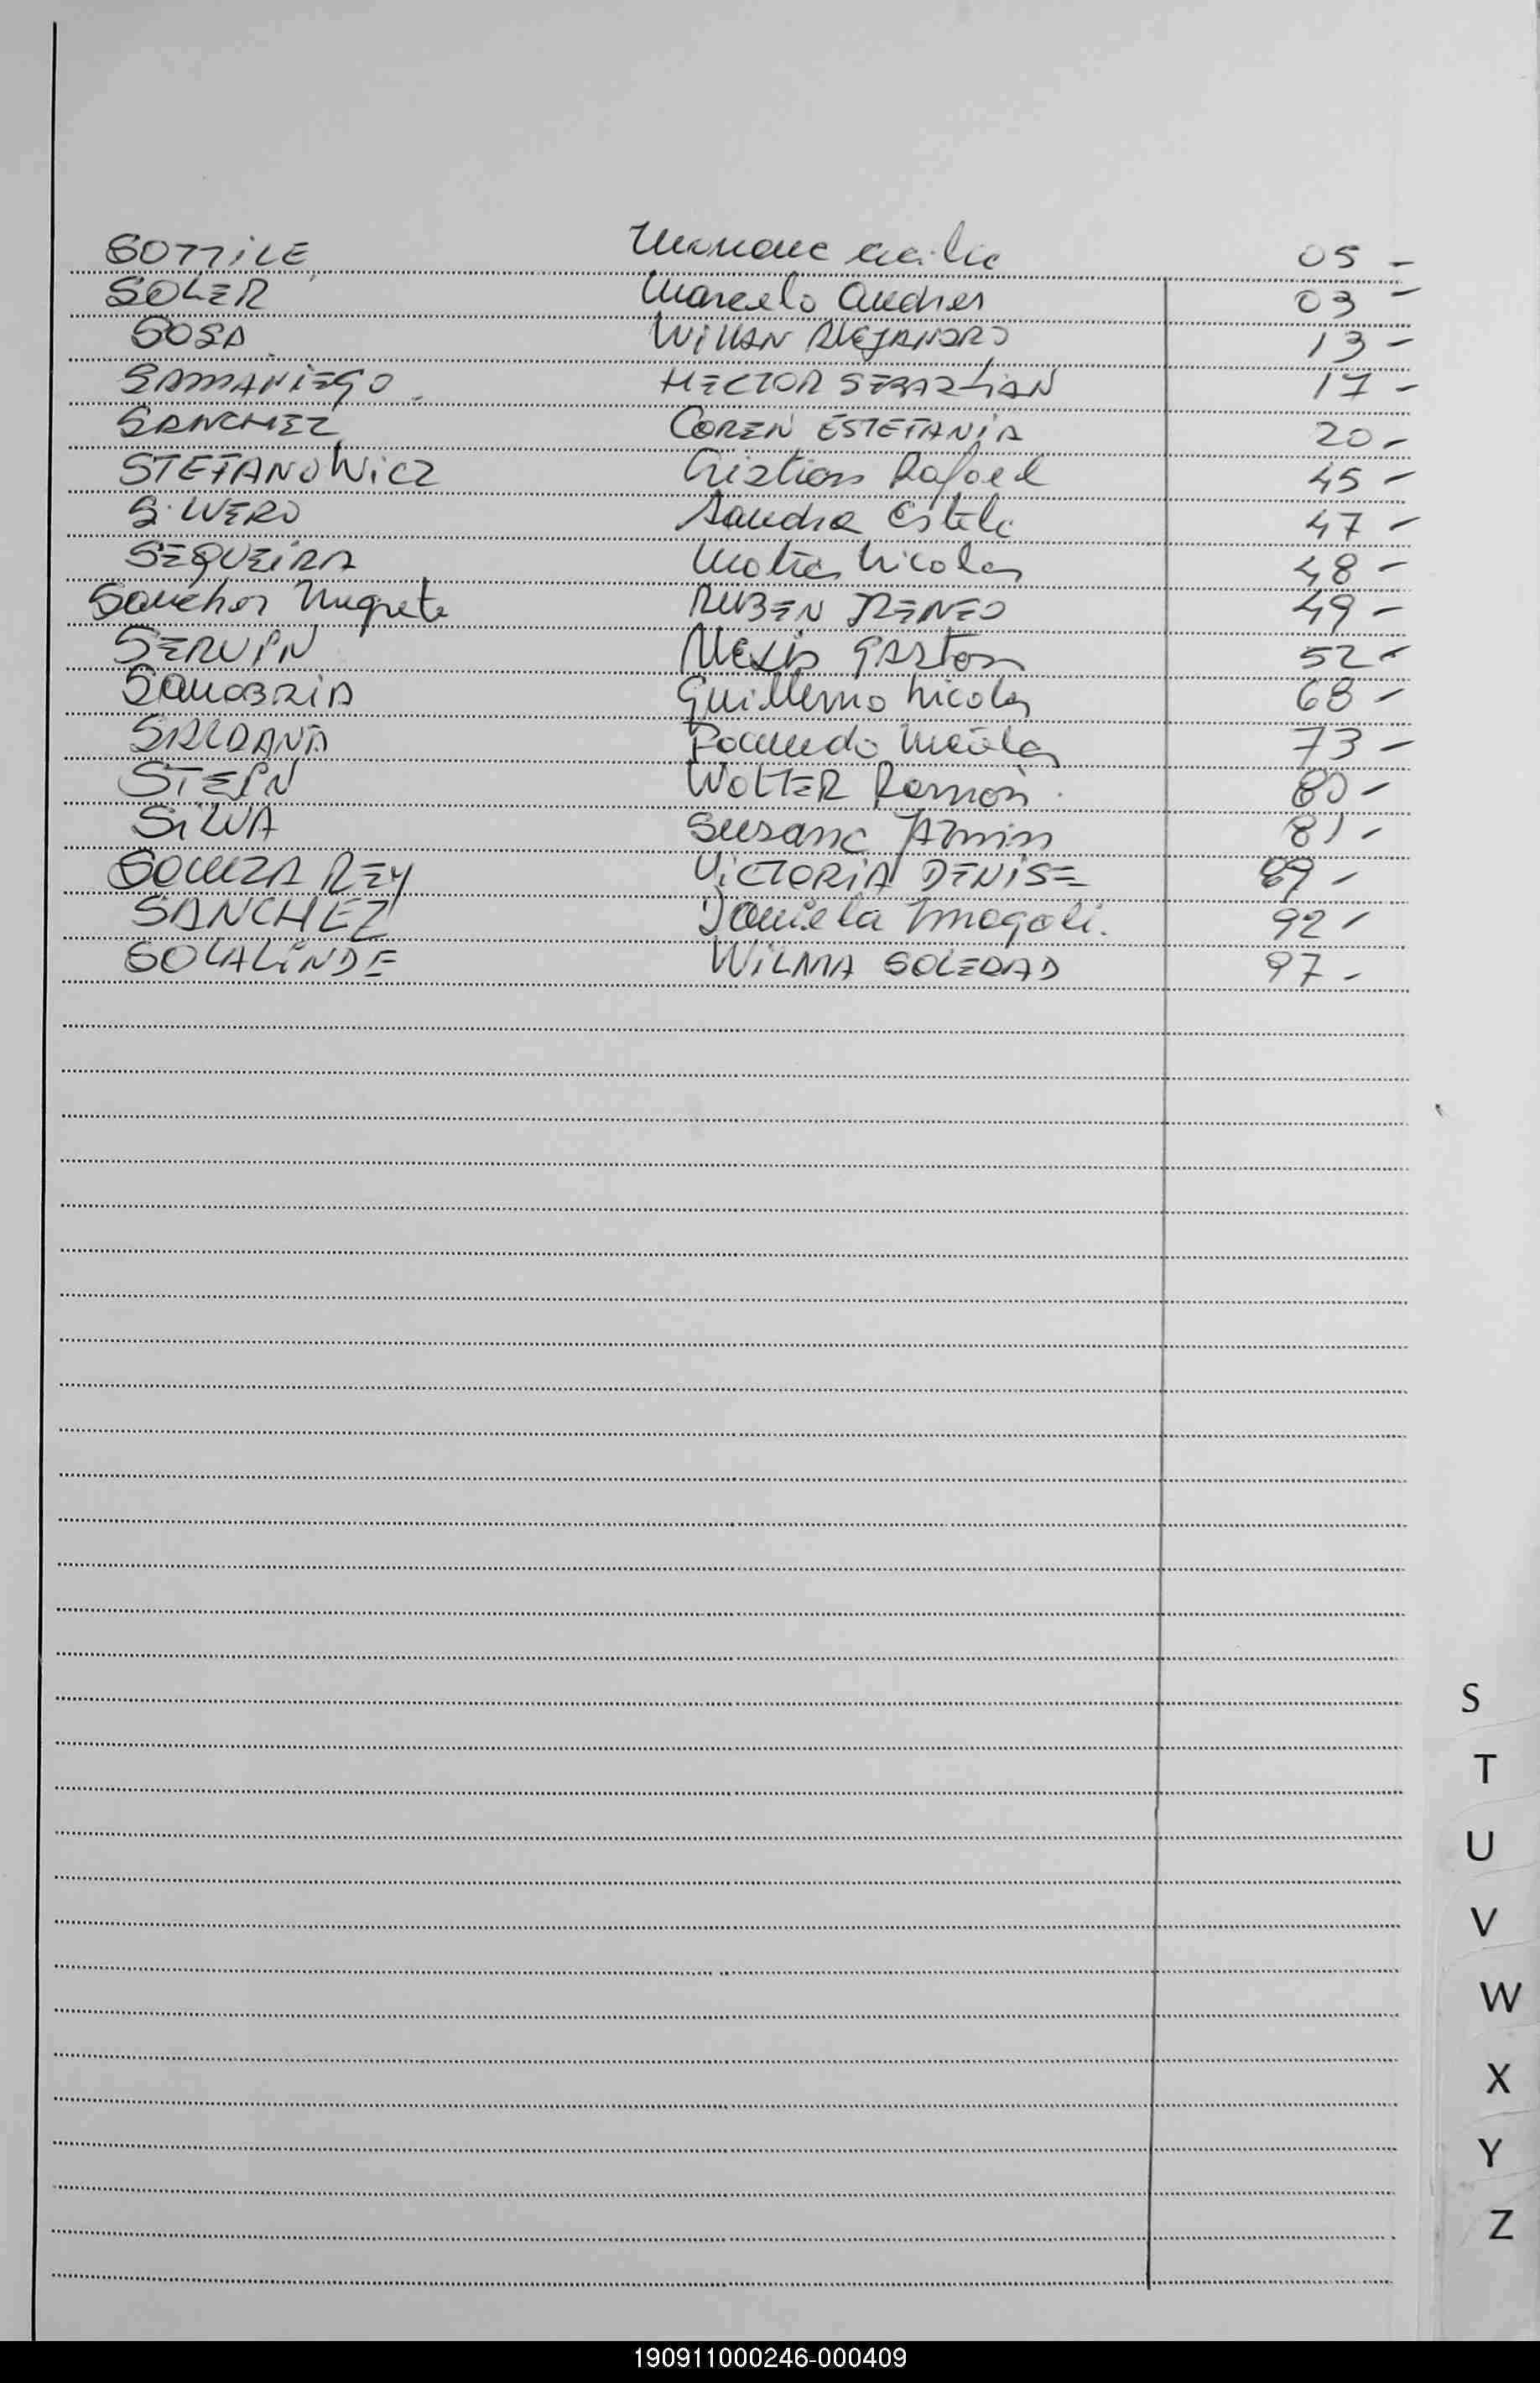 SOTTiLE Mariana Cecilia 05 -
SOLER Marcelo Andres 03 -
SOSA WiLLIAN ALEJANDRO 13 -
SAMANiEGO HECTOR SEBASTiAN 17 -
SANCHEZ COREN ESTEFANiA 20 -
STEFANOWiCZ Cristian Rafael 45 -
SiLVERO Sandra Estela 47 -
SEQUEiRA Matias Nicolas 48 -
Sanchez Negrete RUBEN IRENEO 49 -
SERViN Alexis GASTon 52 -
SANABRIA Guillermo Nicolas 68 -
SALDAÑA Facundo Nicolas 73 -
STEiN WALTER Ramón 80 -
SiLVA Susana 81 -
SOUZA REY ViCTORiA DENiSE 89 -
SANCHEZ Daniela Magali. 92 -
SOLALiNDE WiLMA SOLEDAD 97 -
S
T
U
V
W
X
Y
Z
190911000246-000409